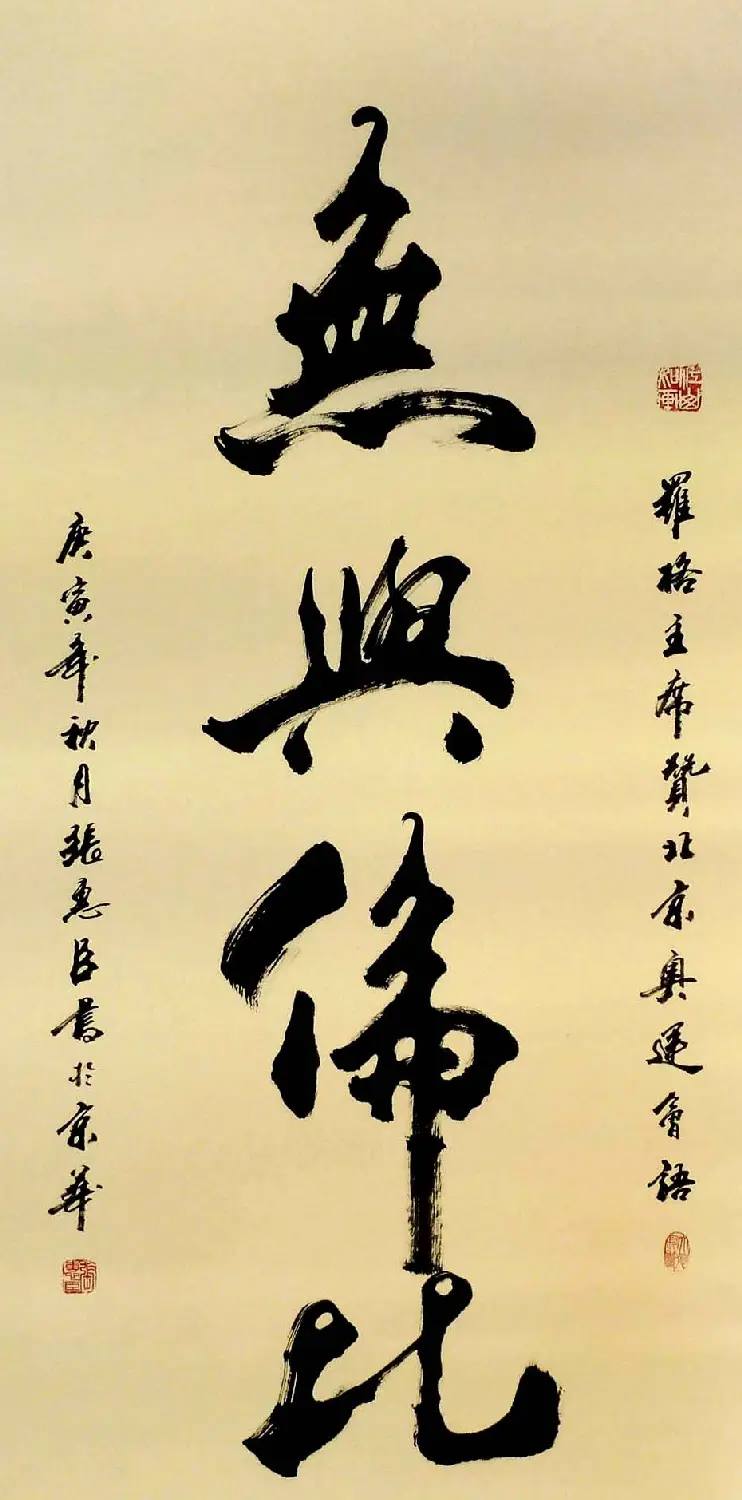 羅格主席贊北京奧運會語
無與倫比
庚寅年秋月張惠臣書於京華